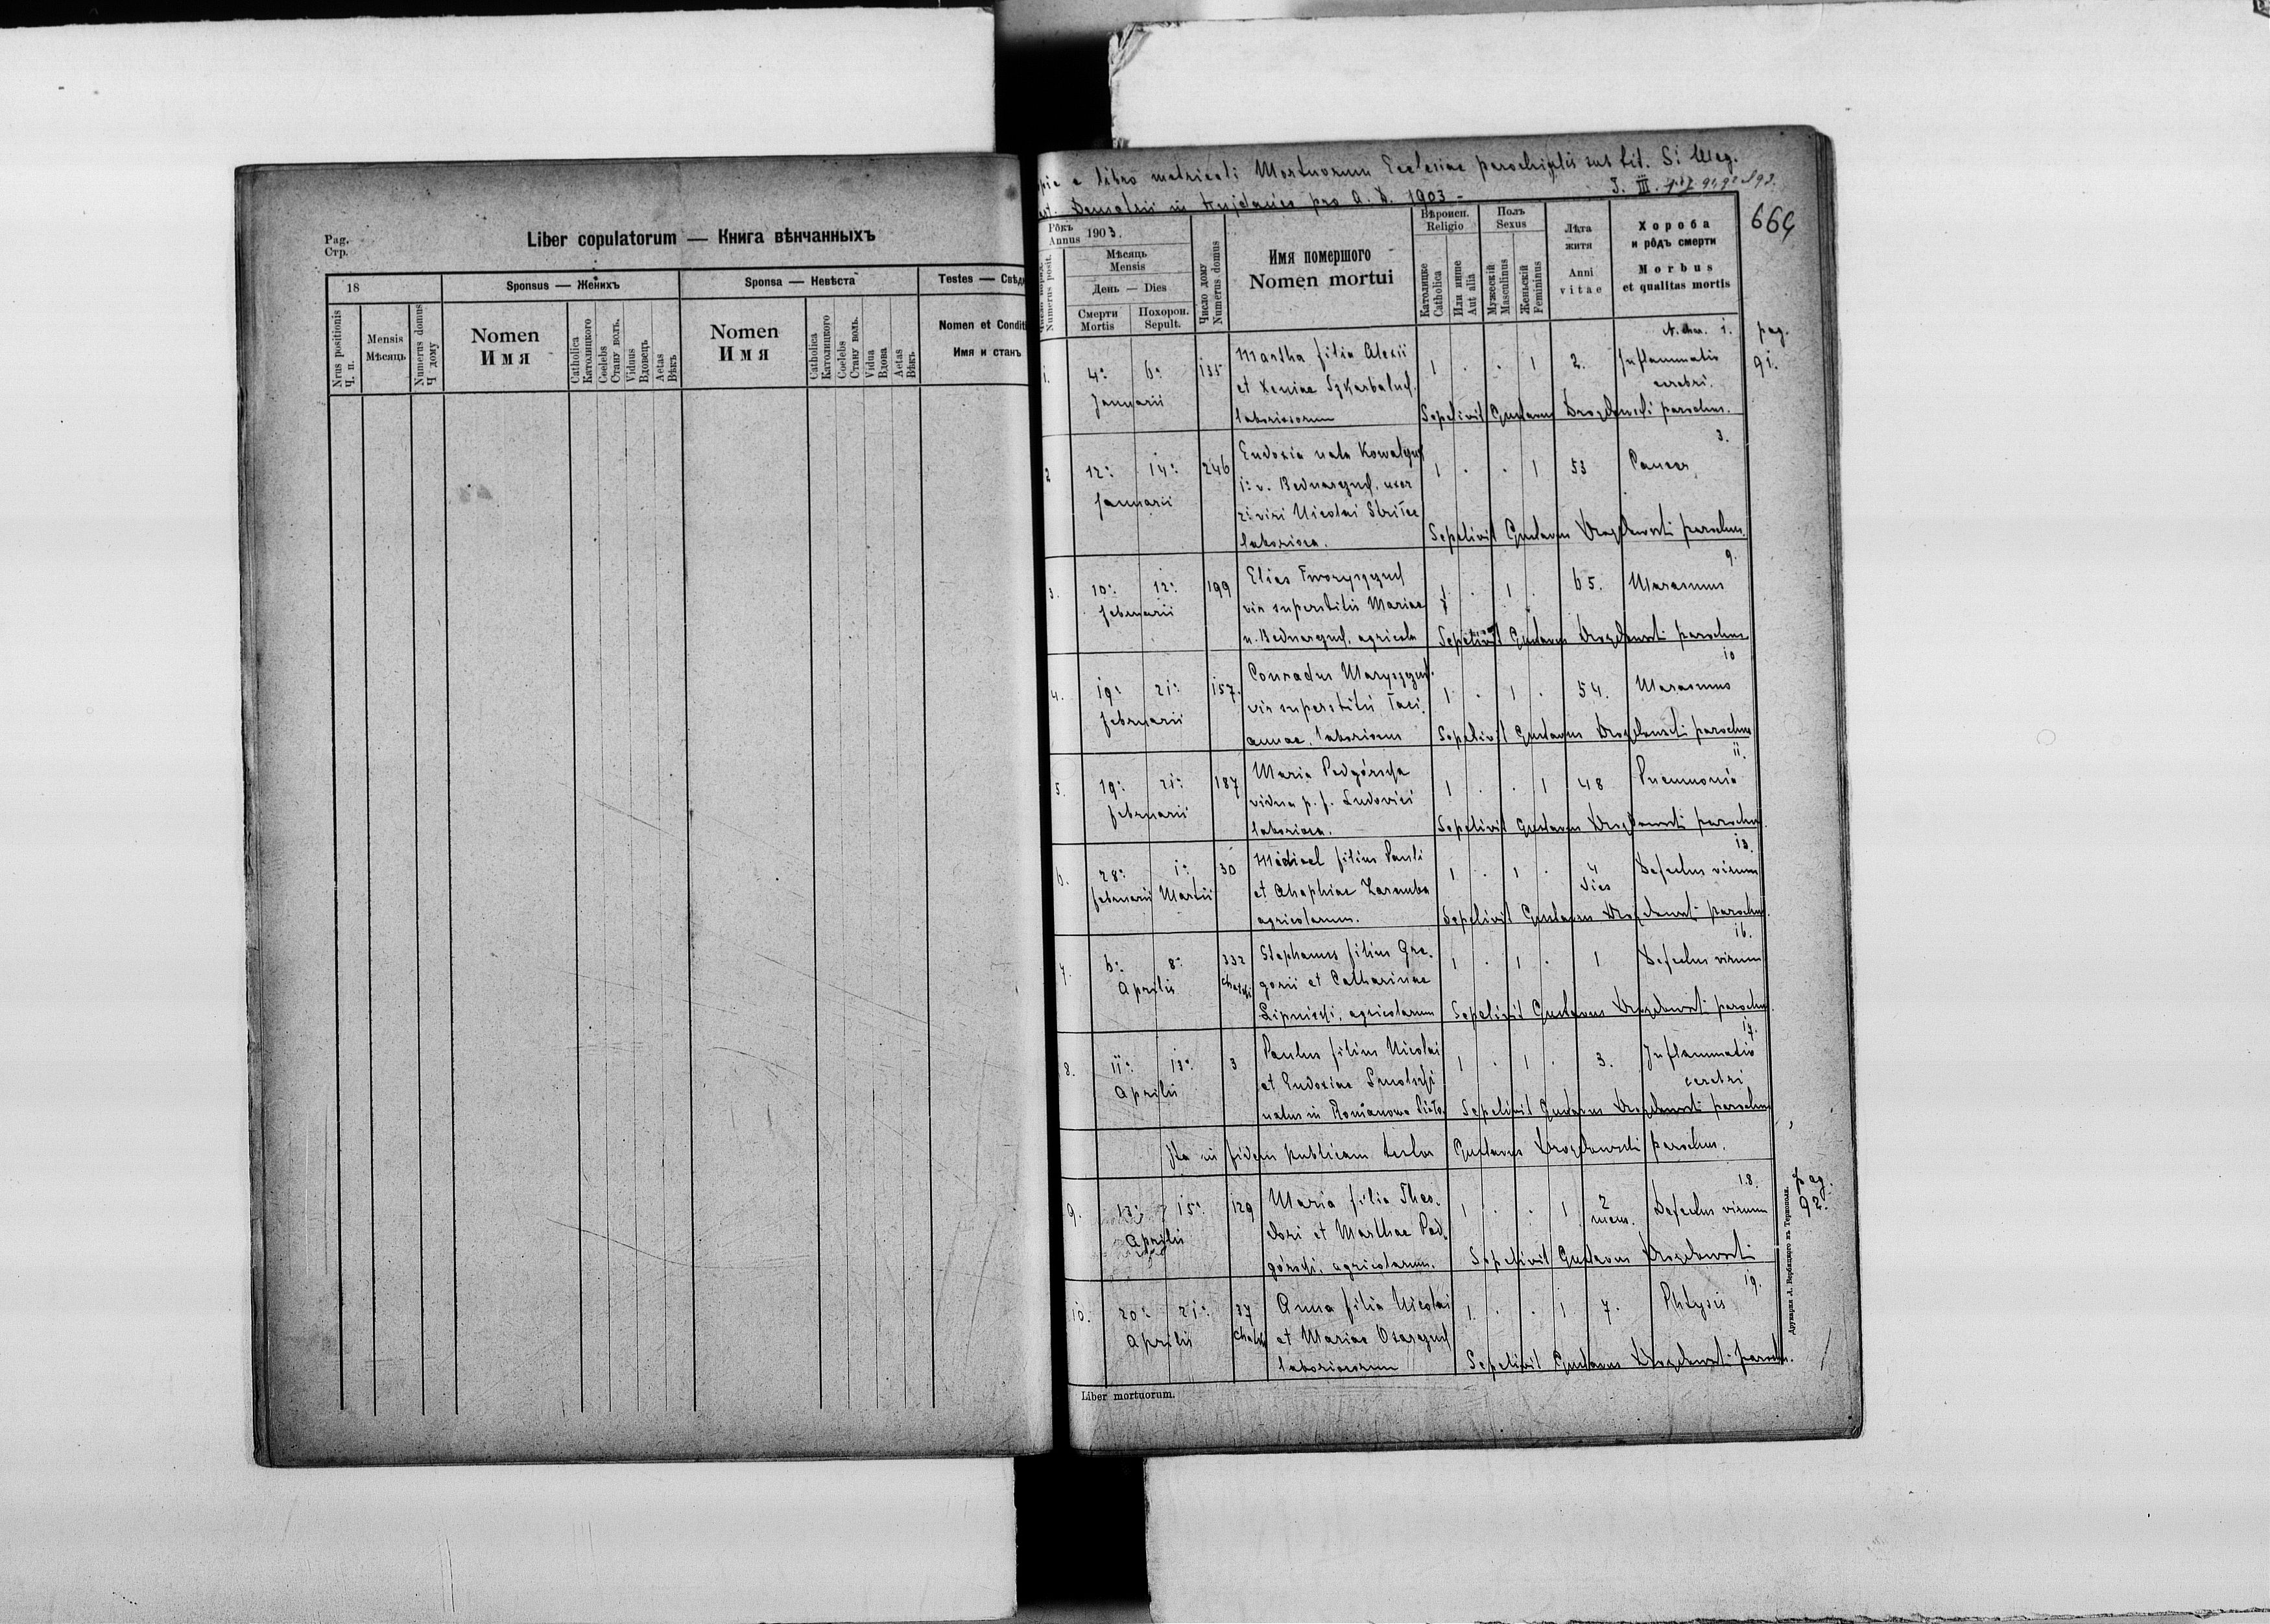 Pag.
Стр.
Liber copulatorum — Книга вѣнчанныхъ
18
Sponsus — Женихъ
Sponsa — Невѣста
Testes —
Nrus positionis
Ч. п.
Mensis
Мѣсяць
Numerus domus
Ч дому
Nomen
Имя
Catholica
Католицкого
Coelebs
Стану волъ.
Viduus
Вдовець
Aetas
Вѣкъ
Nomen
Имя
Catholica
Католицкого
Coelebs
Стану воль.
Vidua
Вдова
Aetas
Вѣкъ
Nomen et
Имя и станъ
e libro metricali Mortuorum Ecclesiae parochialis sub tit. S: Mag.
pro A. D. 1903 -
T. III.
664
Рôкъ
Annus 1903.
Numerus posit.
Мѣсяць
Mensis
День — Dies
Смерти
Mortis
Похорон.
Sepult.
Число дому
Numerus domus
Имя помершого
Nomen mortui
Вѣроисп.
Religio
Католицке
Catholica
Или инше
Aut alia
Полъ
Sexus
Мужескій
Masculinus
Женьскій
Femininus
Лѣта
житя
Anni
vitae
Хороба
и рôдъ смерти
Morbus
et qualitas mortis
1.
4: 6:
Januarii
135
Martha filia Alexii
et Xeniae
laboriosorum
1 . . 1 2.
Inflammatio
cerebri.
pag.
91.
Sepelivit Gustavus Drozdowski parochus.
2
12: 14:
Januarii
246
Eudoxia nata
uxor
2: viri Nicolai
laboriosa.
1 . . 1 53
Cancer
3.
Sepelivit Gustavus Drozdowski parochus.
3.
10: 12:
februarii
199
Elias
vir superstitis Mariae
agricola
1 . 1 . 65.
Marasmus
9.
Sepelivit Gustavus Drozdowski parochus
4.
19: 21:
februarii
157.
Conradus
vir superstitis Taci-
annae, laboriosus
1 . 1 . 54.
Marasmus
10
Sepelivit Gustavus Drozdowski parochus
5.
19: 21:
februarii
187
Maria Podgórska
vidua p. f. Ludovici
laboriosa.
1 . . 1 48
Pneumonia
11.
Sepelivit Gustavus Drozdowski parochus.
6.
28: 1:
februarii Martii
30
Michael filius Pauli
et Ahaphiae Zaremba
agricolarum.
1 . 1 . 4
dies
Defectus virium
13.
Sepelivit Gustavus Drozdowski parochus.
7.
6: 8:
Aprilis
332
Stephanus filius Gre-
gorii et Catharinae
Lipnicki, agricolarum
1 . 1 . 1
Defectus virium
16.
Sepelivit Gustavus Drozdowski parochus.
8.
11: 13:
Aprilis
3
Paulus filius Nicolai
et Eudoxiae Smolski
natus in Romanowe
1 . 1 . 3.
Inflammatio
cerebri
17.
Sepelivit Gustavus Drozdowski parochus
Ita in fidem publicam testor Gustavus Drozdowski parochus.
9.
13: 15:
Aprilis
129
Maria filia Theo-
dori et Marthae Pod-
górski, agricolarum.
1 . . 1 2
mens.
Defectus virium
18.
pag.
92.
Sepelivit Gustavus Drozdowski
10.
20: 21:
Aprilis
37
Anna filia Nicolai
et Mariae
laboriosorum
1. . . 1 7.
Phtysis
19.
Sepelivit Gustavus Drozdowski paroch.
Liber mortuorum.